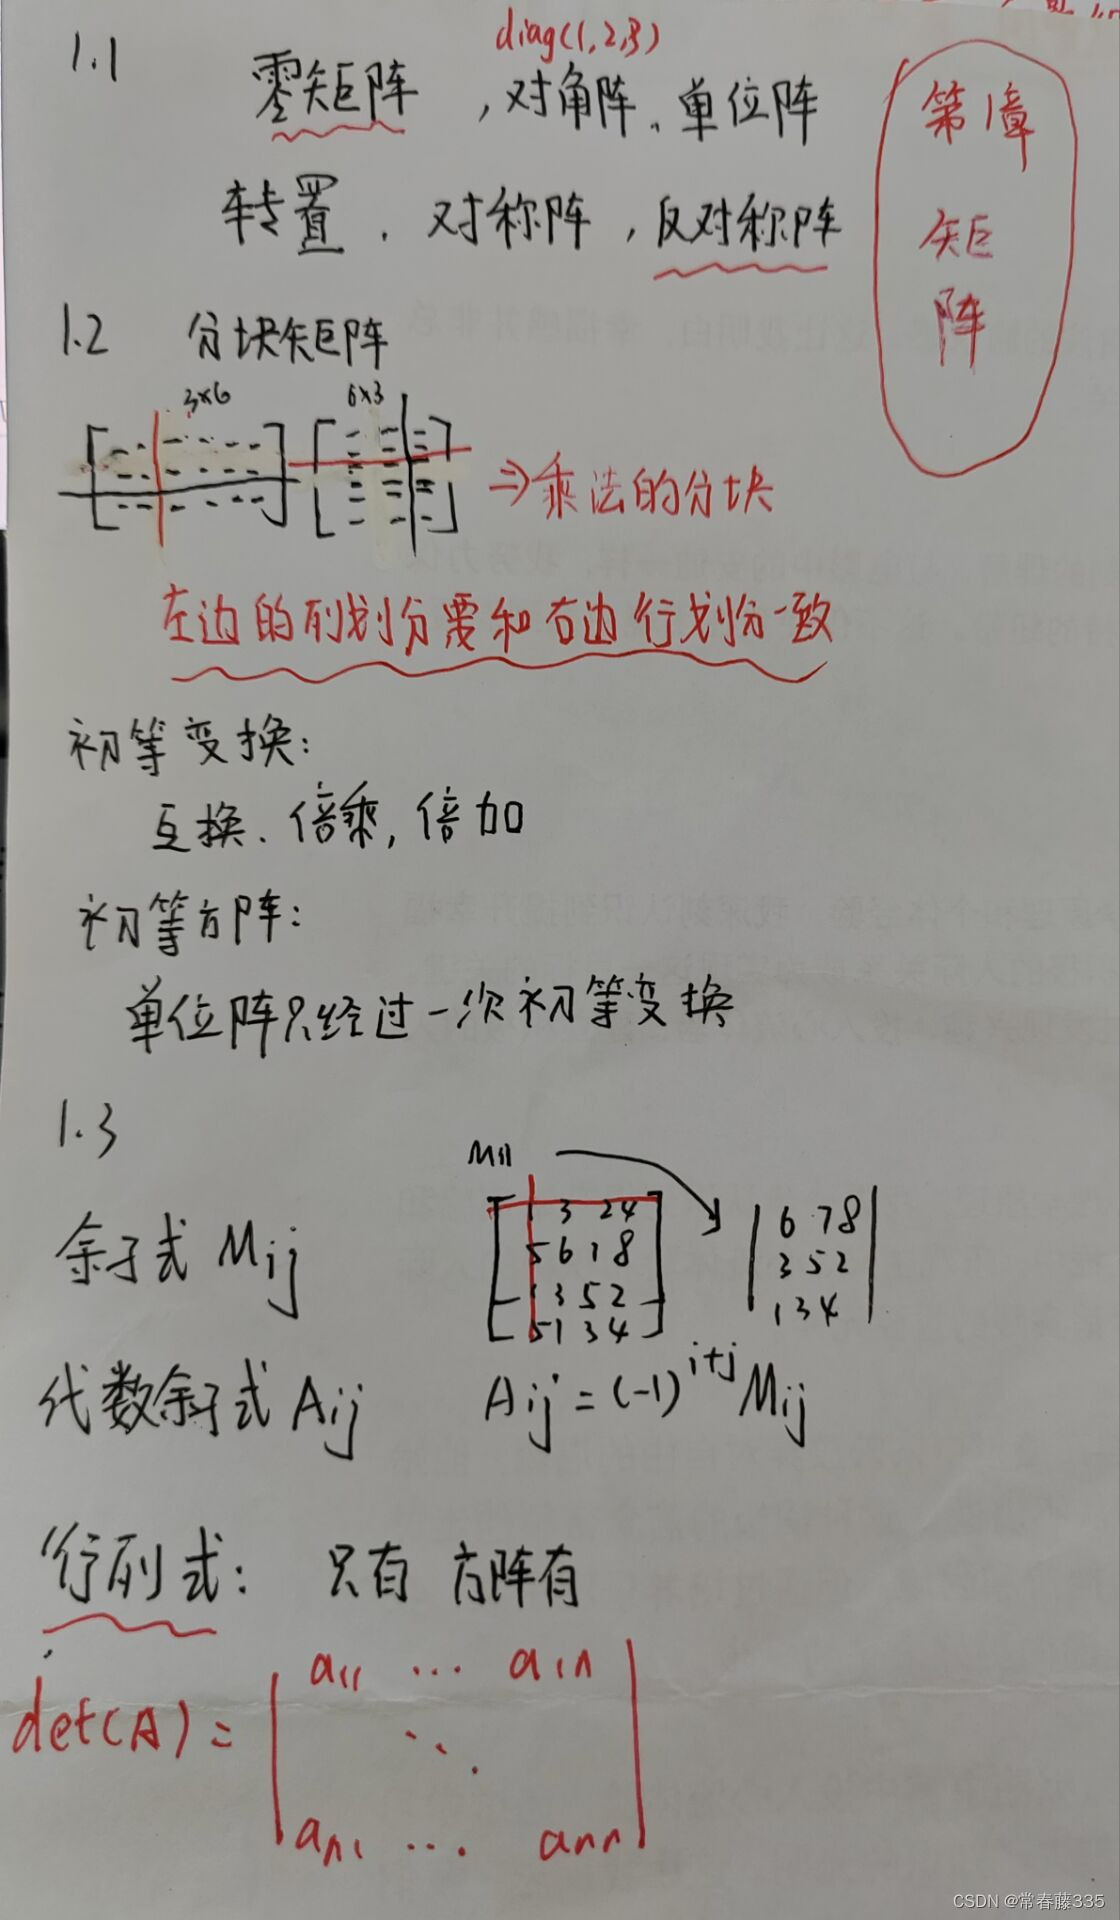 diag(1,2,3)
1.1
零矩阵，对角阵、单位阵
转置、对称阵，反对称阵
第1章
矩
阵
1.2 分块矩阵
3×6 6×3
⇒乘法的分块
左边的列划分需和右边行划份一致
初等变换：
互换、倍乘，倍加
初等方阵：
单位阵只经过一次初等变换
1.3
M11
1 3 2 4
5 6 7 8
1 3 5 2
5 1 3 4
6 7 8
3 5 2
1 3 4
余子式 Mij
代数余子式 Aij Aij = (-1)^{i+j} Mij
行列式：只有方阵有
det(A) =
a11 ... a1n
⋱
an1 ... ann
CSDN @常春藤335